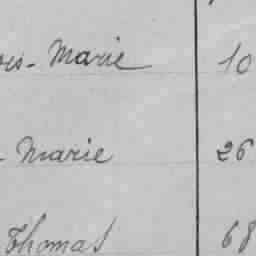 ois-Marie 10
- Marie 26
Thomas 68